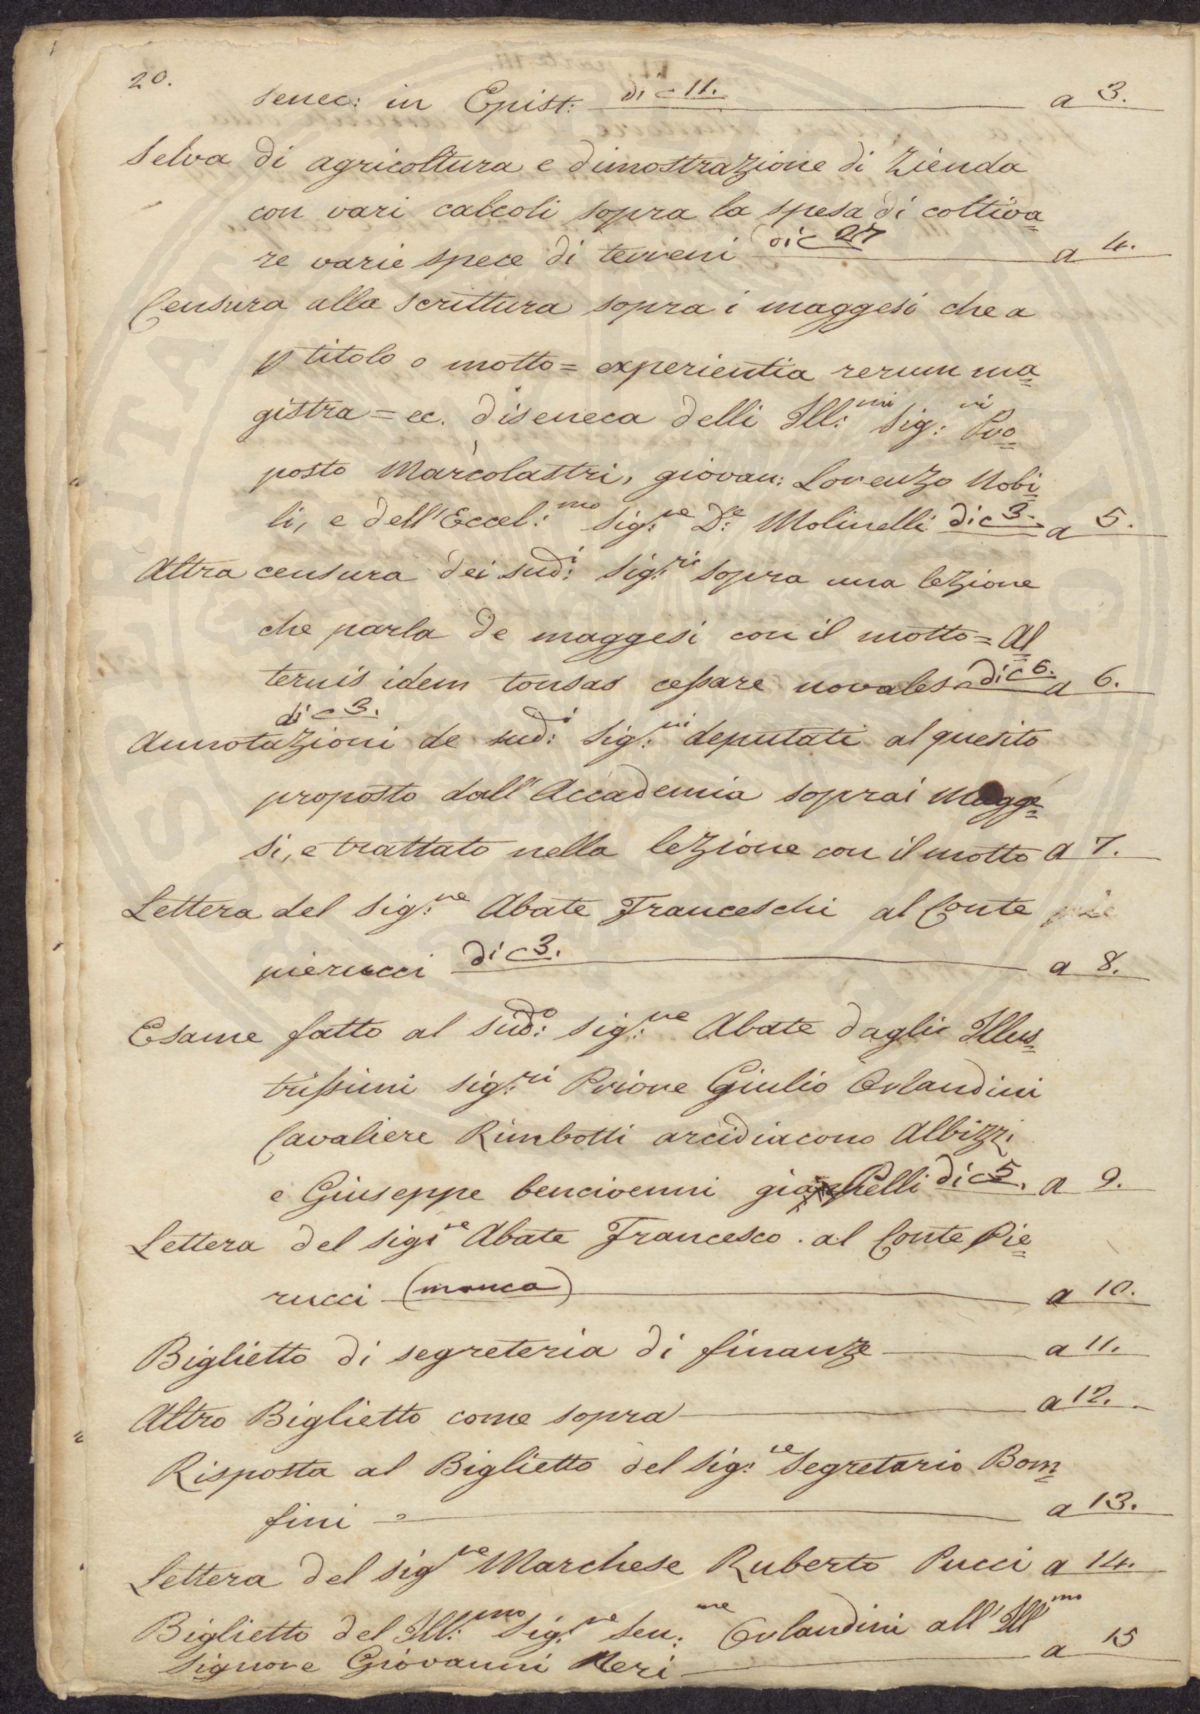 20.
Senec: in Epist: di c 11. a 3.
Selva di agricoltura e dimostrazione di Zienda
con vari calcoli sopra la spesa di coltiva=
re varie spece di terreni di c 27 a 4.
Censura alla scrittura sopra i maggesi che a
p titolo o motto = experientia rerum ma=
gistra = ec. di seneca delli Ill:mi Sig:ri Pro=
posto Marcolastri, giovan: Lorenzo Nobi=
li, e dell'Eccel:mo Sig:re D:e Molinelli di c 3. a 5.
Altra censura dei sud:i sig:ri sopra una lezione
che parla de maggesi con il motto = Al=
ternis idem tonsas cessare novales di c 6. a 6.
di c 3.
Annotazioni de sud:i Sig:ri deputati al quesito
proposto dall'Accademia soprai Magge=
si, e trattato nella lezione con il motto a 7.
Lettera del Sig:re Abate Franceschi al Conte
pierucci di c 3. a 8.
Esame fatto al sud:o sig:re Abate daglie Illus=
trissimi sig:ri Priore Giulio Orlandini
Cavaliere Rimbotti arcidiacono Albizzi
e Giuseppe bencivenni Pelli di c 5. a 9.
Lettera del sig:re Abate Francesco. al Conte Pie=
rucci (manca) a 10.
Biglietto di segreteria di finanze a 11.
Altro Biglietto come sopra a 12.
Risposta al Biglietto del Sig:re Segretario Bom=
fini a 13.
Lettera del sig:re Marchese Ruberto Pucci a 14.
Biglietto del Ill:mo Sig:re Sen:re Orlandini all'Ill:mo
Signore Giovanni Neri a 15